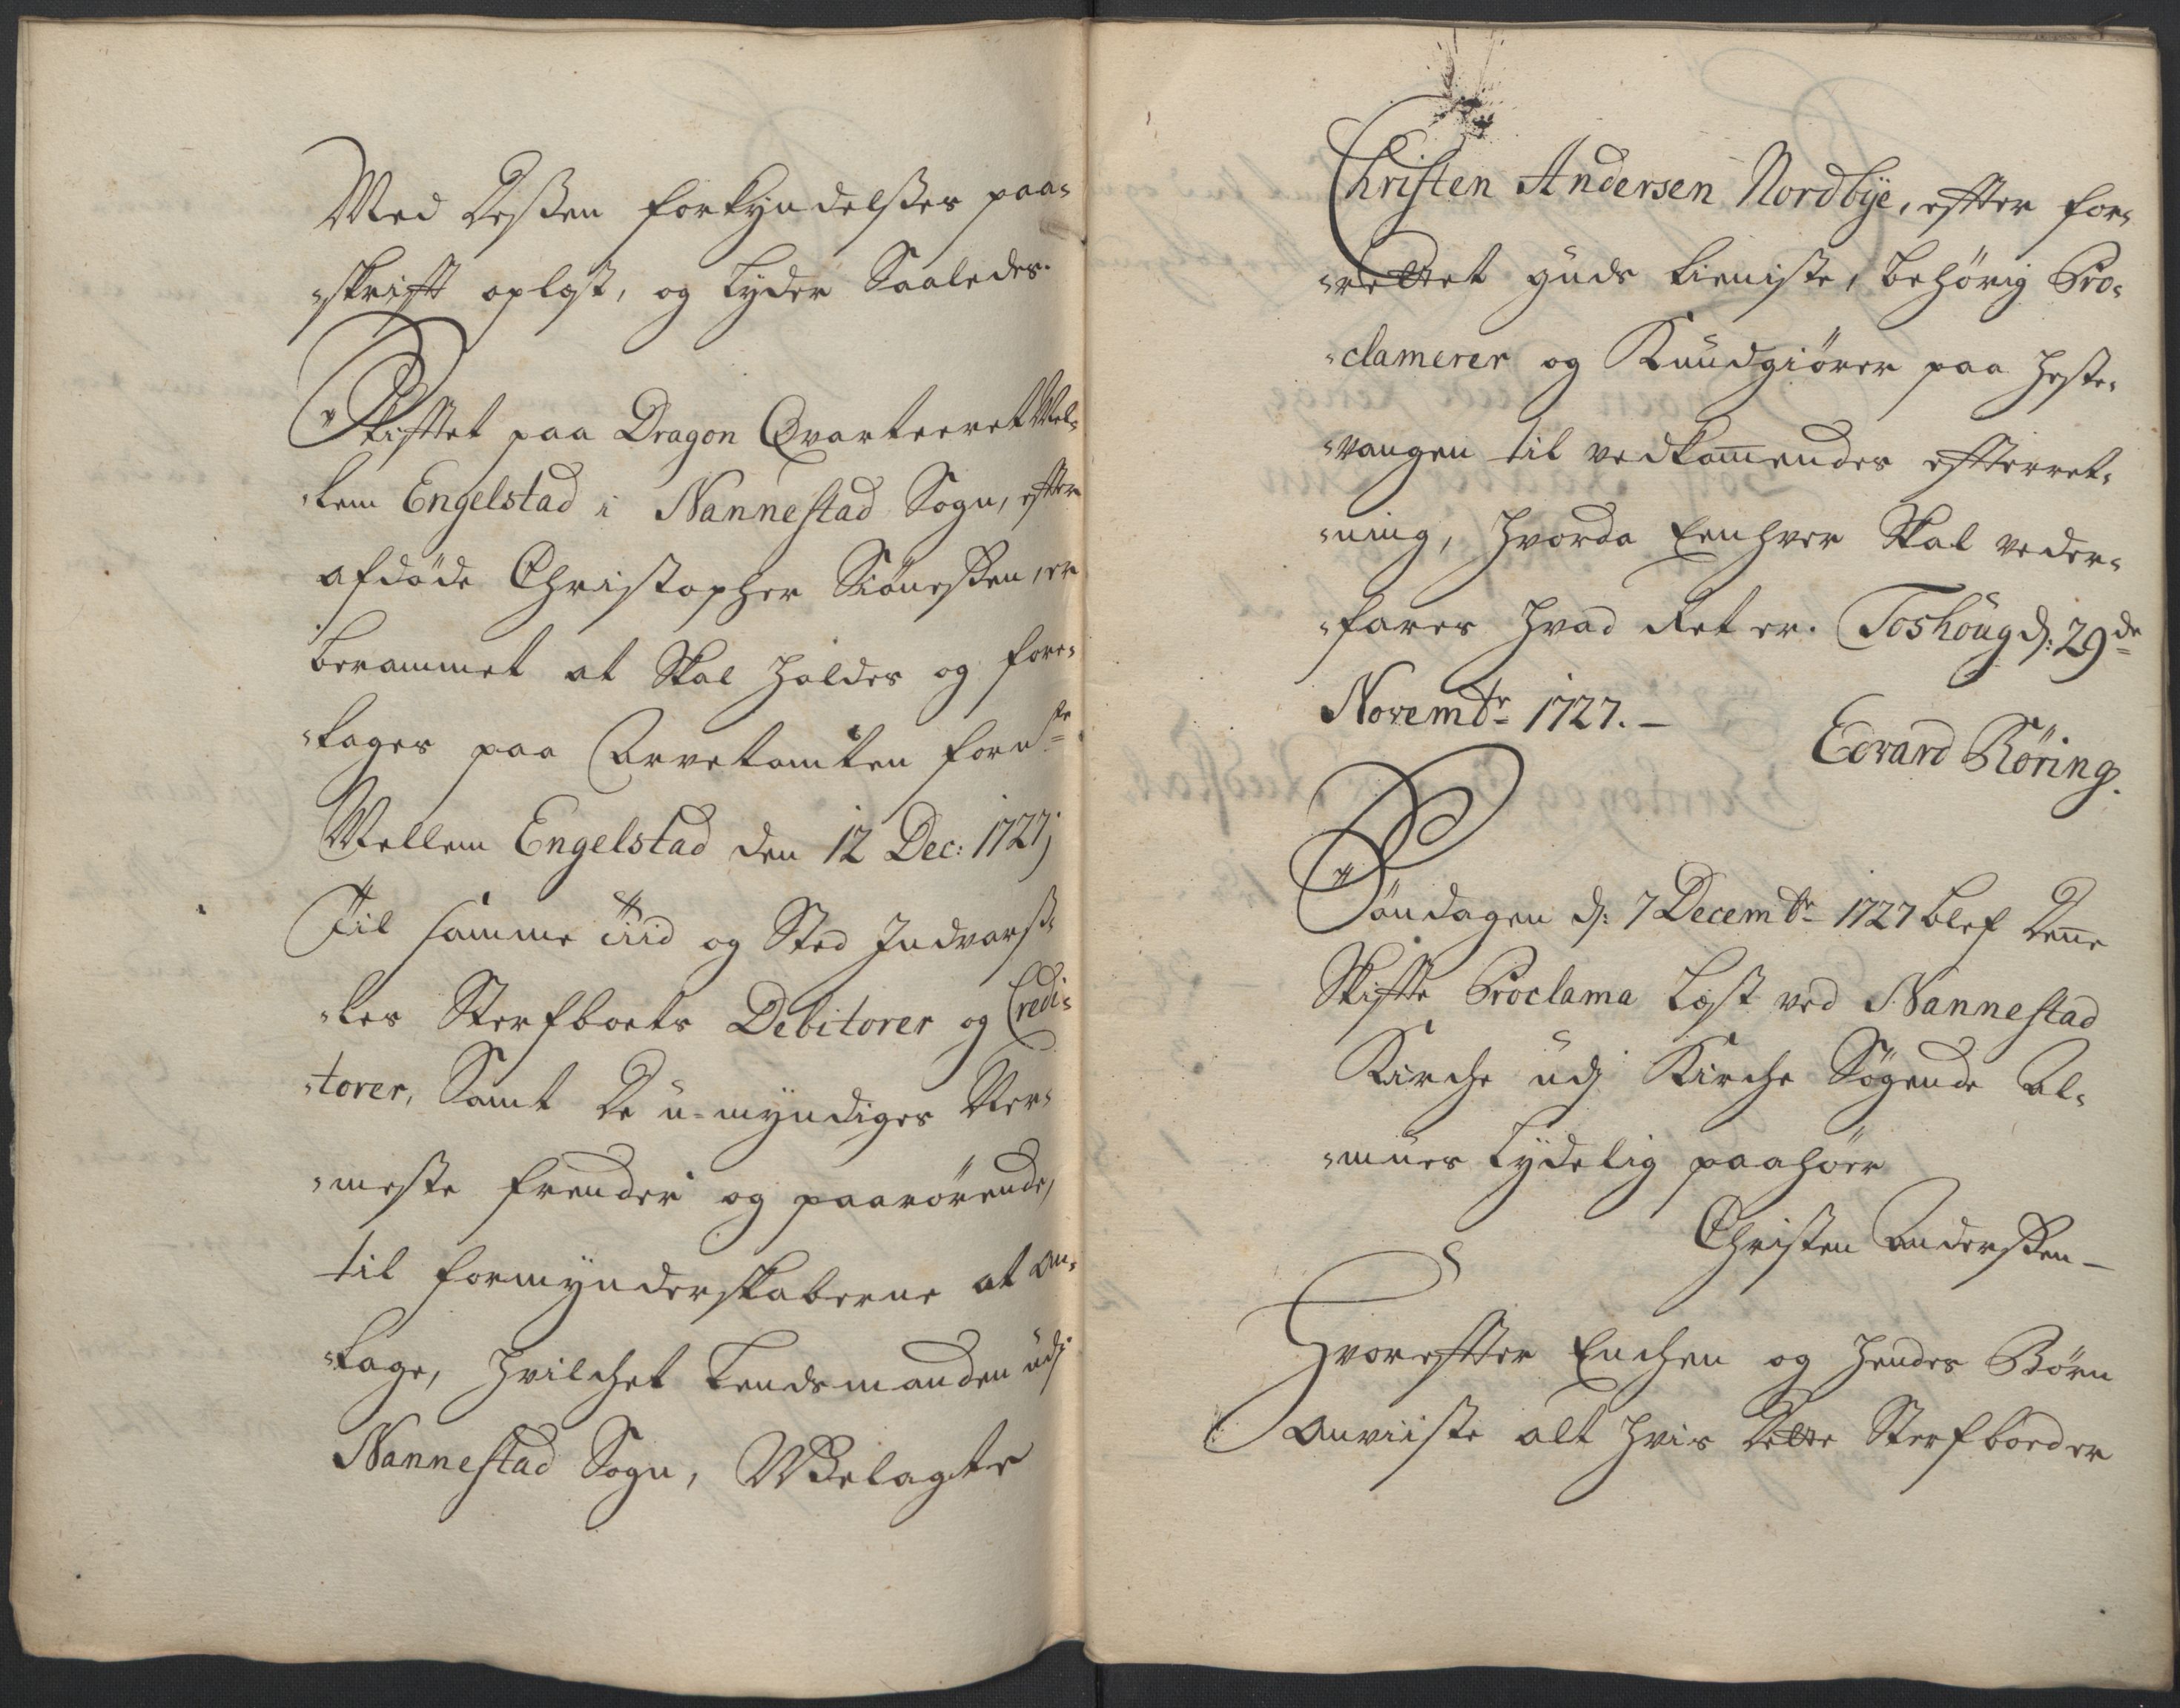 Med Dessen forkyndelsses paa-
-skrifft oplæst, og Lyder Saaledes.
Skifftet paa Dragon Qvarteeret Mel-
-lem Engelstad i Nannestad Sogn, effter
afdøde Christopher Siönessen, er
berammet at Skal holdes og fore-
-tages paa Aarvetomten forn:te
Mellem Engelstad den 12 Dec: 1727;
Til samme tiid og Sted Indvars-
-les Sterfboets Debitorer og Credi-
-torer, Samt De u-myndiges Ner-
-meste frender og paarørende,
til formynderskaberne at an-
-tage, hvilchet Lendsmanden udj
Nannestad Sogn, Welagte
Christen Andersen Nordbye, effter for-
-rettet guds tieniste, behörig Pro-
-clamerer og Kundgiörer paa heste-
-vangen til vedkommendes effterret-
-ning, hvorda Eenhver Skal veder-
-fares hvad Ret er. Toshoug d: 29de
Novembr 1727. -
Edvard Röring.
Söndagen d: 7 Decembr 1727 blef Denne
Skiffte Proclama Læst ved Nannestad
Kirche udj Kirche Søgende Al-
-mues Lydelig paahör
Christen Anderssen -
Hvoreffter Enchen og hendes Börn
anviiste alt hvis Dette Sterfboed er